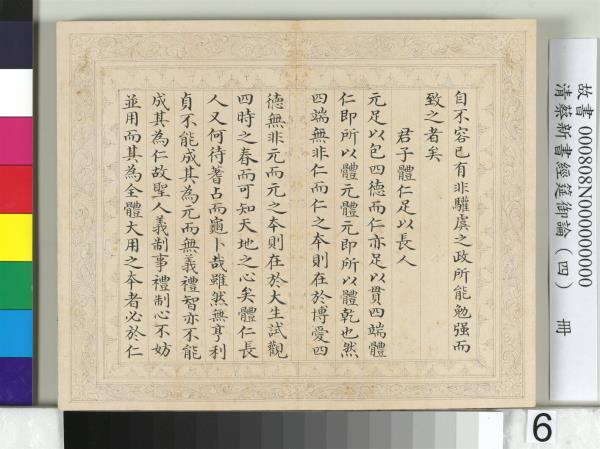 自不容已有非驩虞之政所能勉强而
致之者矣
君子體仁足以長人
元足以包四德而仁亦足以貫四端體
仁即所以體元體元即所以體乾也然
四端無非仁而仁之本則在於博愛四
德無非元而元之本則在於大生試觀
四時之春而可知天地之心矣體仁長
人又何待蓍占而龜卜哉雖然無亨利
貞不能成其為元而無義禮智亦不能
成其為仁故聖人義制事禮制心不妨
並用而其為全體大用之本者必於仁
故書 000808N000000000
清蔡新書經筵御論(四) 冊
6